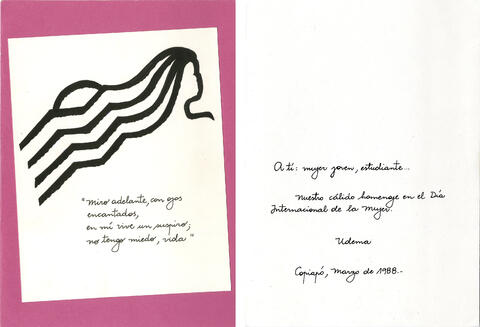 "Miro adelante, con ojos
encantados,
en mí vive un suspiro;
no tengo miedo, vida"
A tí: mujer joven, estudiante...
Nuestro cálido homenaje en el Día
Internacional de la Mujer.
Udema
Copiapó, marzo de 1988.-